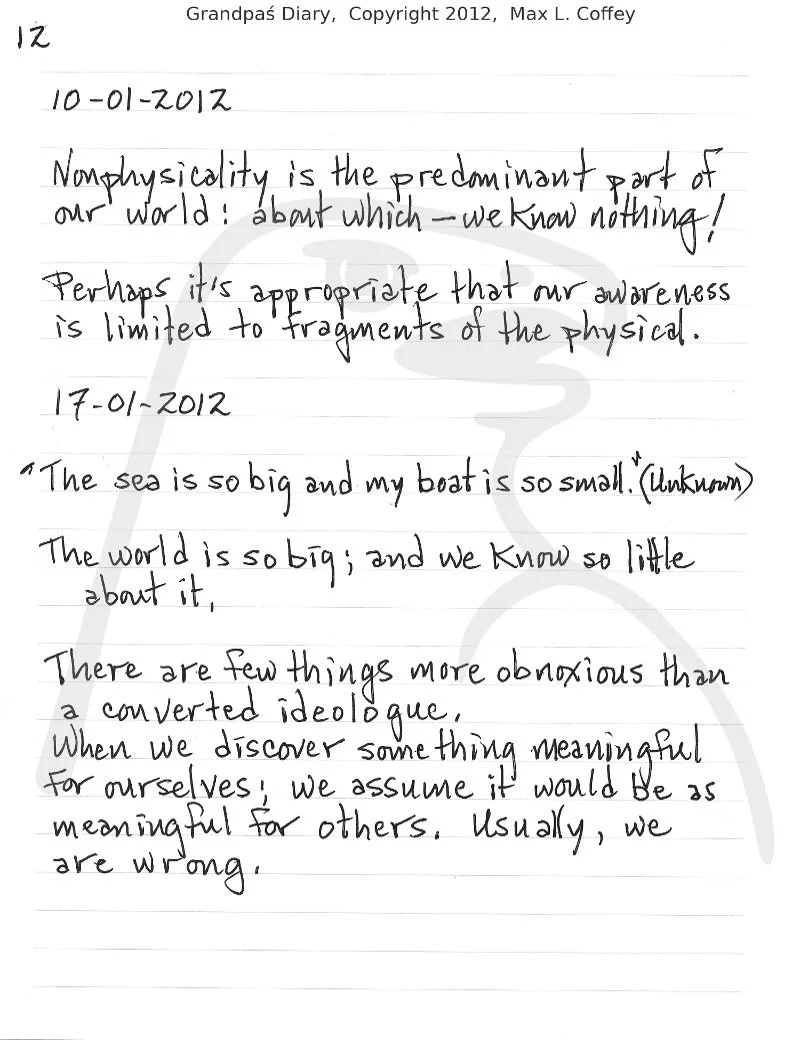 Grandpaś Diary, Copyright 2012, Max L. Coffey
12
10-01-2012
Nonphysicality is the predominant part of
our world: about which – we know nothing!
Perhaps it's appropriate that our awareness
is limited to fragments of the physical.
17-01-2012
"The sea is so big and my boat is so small." (Unknown)
The world is so big; and we know so little
about it,
There are few things more obnoxious than
a converted ideologue.
When we discover something meaningful
for ourselves; we assume it would be as
meaningful for others. Usually, we
are wrong.